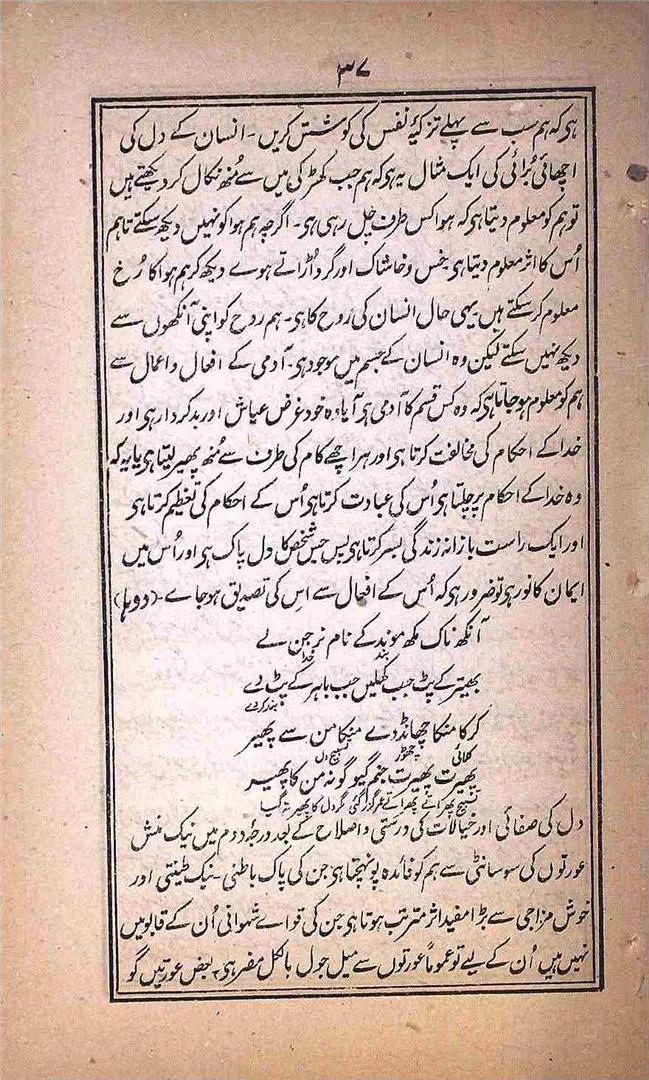 ۳۷
ہی کہ ہم سب سے پہلے تزکیۂ نفس کی کوشش کریں۔ انسان کے دل کی
اچھائی بُرائی کی ایک مثال یہ ہی کہ ہم جب کھڑکی میں سے مُنھ نکال کر دیکھتے ہیں
تو ہم کو معلوم دیتا ہی کہ ہوا کس طرف چل رہی ہی۔ اگرچہ ہم ہوا کو نہیں دیکھ سکتے تاہم
اُس کا اثر معلوم دیتا ہی۔ خس و خاشاک اور گرد اُڑاتے ہوے دیکھ کر ہم ہوا کا رُخ
معلوم کر سکتے ہیں یہی حال انسان کی رُوح کا ہی۔ ہم روح کو اپنی آنکھوں سے
دیکھ نہیں سکتے لیکن وہ انسان کے جسم میں موجود ہی۔ آدمی کے افعال و اعمال سے
ہم کو معلوم ہو جاتا ہی کہ وہ کس قسم کا آدمی ہی آیا وہ خود غرض عیاش اور بدکردار ہی اور
خدا کے احکام کی مخالفت کرتا ہی اور ہر اچھے کام کی طرف سے مُنھ پھیر لیتا ہی یا یہ کہ
وہ خدا کے احکام پر چلتا ہی اُس کی عبادت کرتا ہی اُس کے احکام کی تعظیم کرتا ہی
اور ایک راست بازانہ زندگی بسر کرتا ہی پس جس شخص کا دل پاک ہی اور اُس میں
ایمان کا نور ہی تو ضرور ہی کہ اُس کے افعال سے اِس کی تصدیق ہو جاے۔ (دوہا)
آنکھ ناک مکھ موند کے نام نرنجن لے
بند خدا
بھیتر کے پٹ جب کھلیں جب باہر کے پٹ دے
بند کر دے
کر کا منکا چھانڈ دے منکا من سے پھیر
کلائی چھوڑ تسبیح دل
پھیرت پھیرت جنم گیو گو نہ من کا پھیر
تسبیح پھراتے پھراتے عمر گزر گئی مگر دل کا پھیر نہ گیا
دل کی صفائی اور خیالات کی درستی و اصلاح کے بعد درجۂ دوم میں نیک منش
عورتوں کی سوسائٹی سے ہم کو فائدہ پونہچتا ہی جن کی پاک باطنی۔ نیک طینتی اور
خوش مزاجی سے بڑا مفید اثر مترتب ہوتا ہی جن کی قواے شہوانی اُن کے قابو میں
نہیں ہیں اُن کے لیے تو عموماً عورتوں سے میل جول بالکل مضر ہی۔ بعض عورتیں گو